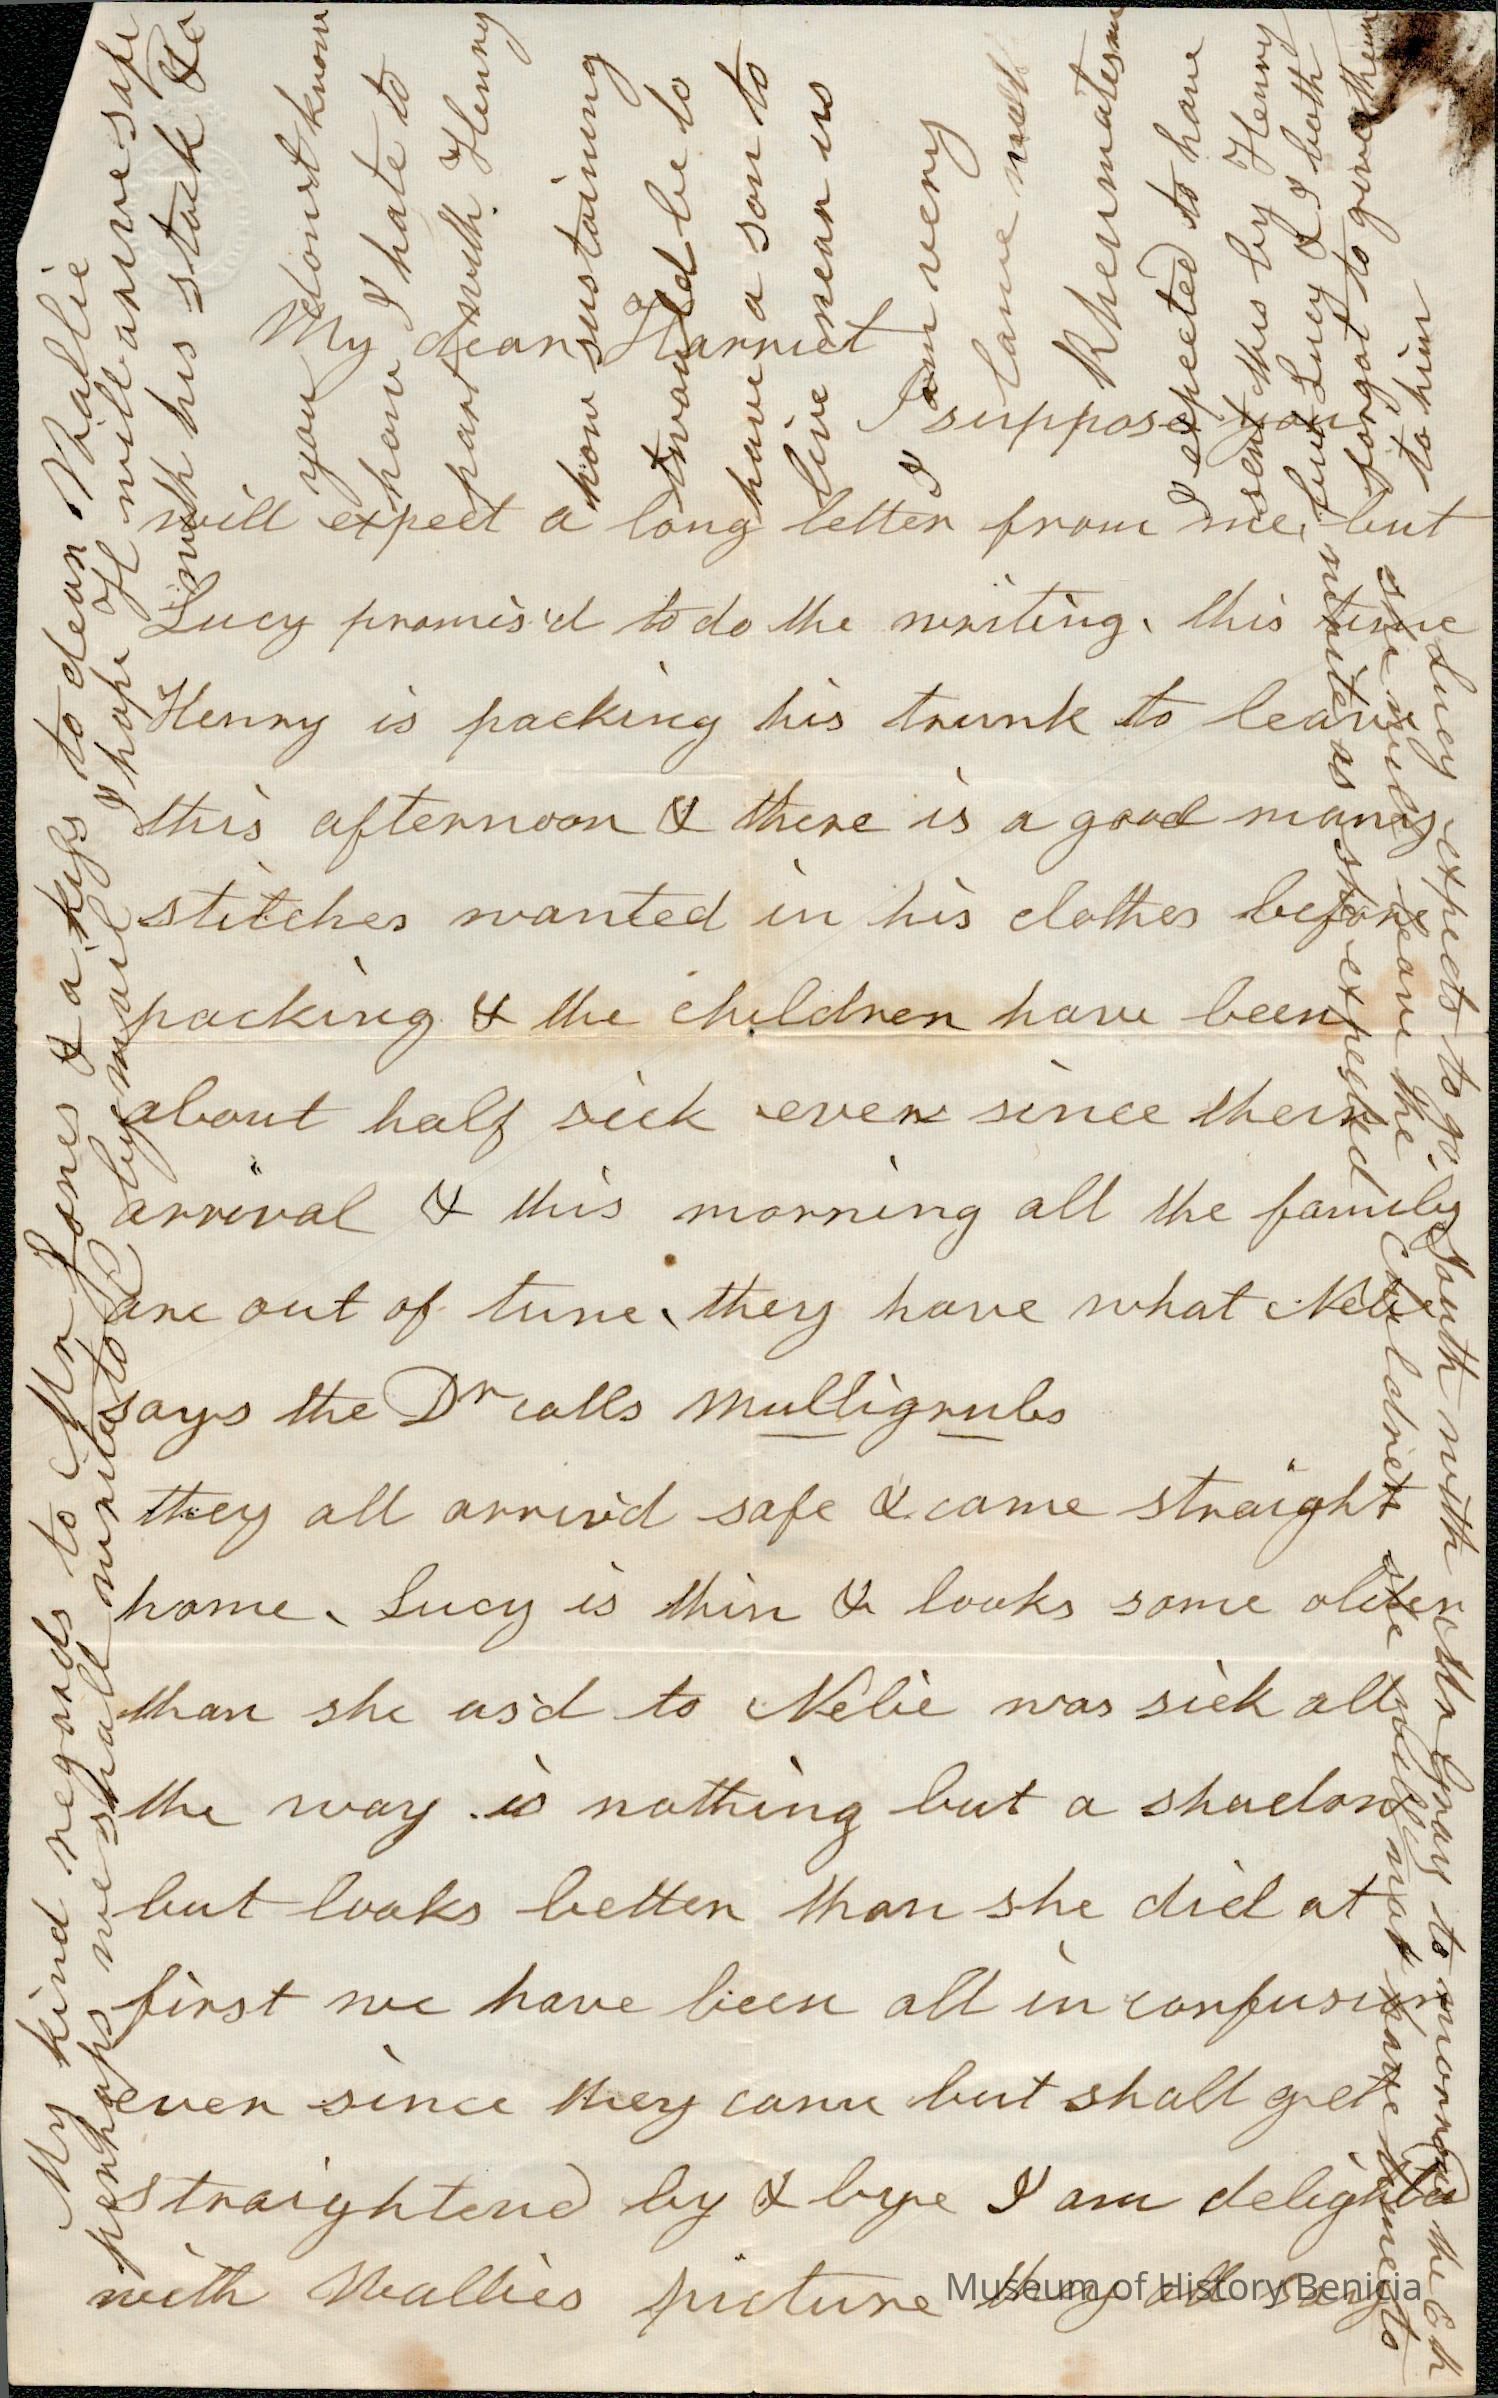 My dear Harriet
I suppose you
will expect a long letter from me, but
Lucy promis'd to do the writing, this time
Henry is packing his trunk to leave
this afternoon & there is a good many
stitches wanted in his clothes before
packing & the children have been
about half sick ever since their
arrival & this morning all the family
are out of tune, they have what Nelie
says the Dr calls Mulligrubs
they all arriv'd safe & came straight
home, Lucy is thin & looks some older
than she us'd to Nelie was sick all
the way is nothing but a shadow
but looks better than she did at
first we have been all in confusion
ever since they came but shall get
straightend by & bye I am delighted
with Mallies picture they all say
you dont know
how I hate to
part with Henry
how sustaining
twould be to
have a son to
live near us
I am very
lame with
Rheumatism
I expected to have
sent this by Henry
but Lucy & I both
forgot to give them
to him
My kind regards to Mr Jones & a kiss to dear Mallie
perhaps we shall write to C by mail I hope H will arrive safe
with his stock &c
Lucy expects to go South with Mr Gray to morrow the Ch
she will leave the Children she will not have time to
write as she expected
Museum of History Benicia